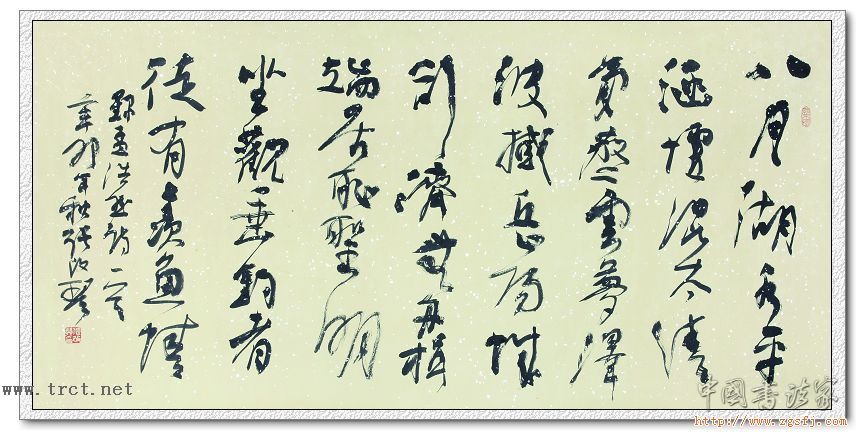 八月湖水平
涵虚混太清
氣蒸雲夢澤
波撼岳陽城
欲濟無舟楫
端居耻聖明
坐觀垂釣者
徒有羨魚情
録孟浩然詩一首
辛卯年秋張改琴
www.trct.net
中國書法家
http://www.zgsfj.com